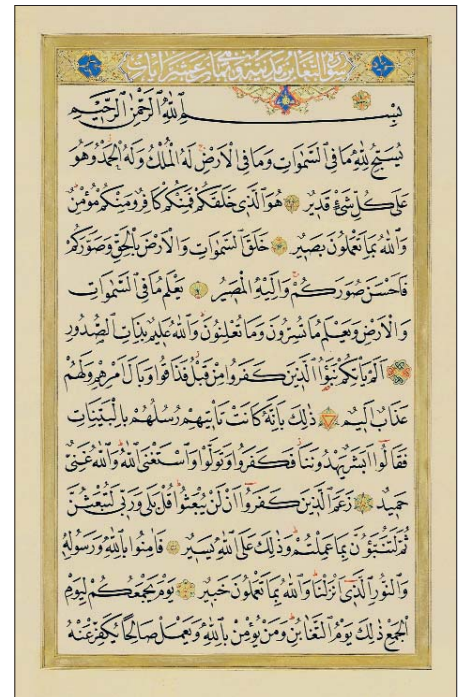 سورة التغابن مدنية وهي ثمان عشر ايات
بِسْمِ اللّٰهِ الرَّحْمٰنِ الرَّحِيمِ
يُسَبِّحُ لِلّٰهِ مَا فِي السَّمٰوَاتِ وَمَا فِي الْاَرْضِ لَهُ الْمُلْكُ وَلَهُ الْحَمْدُ وَهُوَ
عَلٰى كُلِّ شَيْءٍ قَدِيرٌ هُوَ الَّذِي خَلَقَكُمْ فَمِنْكُمْ كَافِرٌ وَمِنْكُمْ مُؤْمِنٌ
وَاللّٰهُ بِمَا تَعْمَلُونَ بَصِيرٌ خَلَقَ السَّمٰوَاتِ وَالْاَرْضَ بِالْحَقِّ وَصَوَّرَكُمْ
فَاَحْسَنَ صُوَرَكُمْ وَاِلَيْهِ الْمَصِيرُ يَعْلَمُ مَا فِي السَّمٰوَاتِ
وَالْاَرْضِ وَيَعْلَمُ مَا تُسِرُّونَ وَمَا تُعْلِنُونَ وَاللّٰهُ عَلِيمٌ بِذَاتِ الصُّدُورِ
اَلَمْ يَأْتِكُمْ نَبَؤُا الَّذِينَ كَفَرُوا مِنْ قَبْلُ فَذَاقُوا وَبَالَ اَمْرِهِمْ وَلَهُمْ
عَذَابٌ اَلِيمٌ ذٰلِكَ بِاَنَّهُ كَانَتْ تَأْتِيهِمْ رُسُلُهُمْ بِالْبَيِّنَاتِ
فَقَالُوا اَبَشَرٌ يَهْدُونَنَا فَكَفَرُوا وَتَوَلَّوْا وَاسْتَغْنَى اللّٰهُ وَاللّٰهُ غَنِيٌّ
حَمِيدٌ زَعَمَ الَّذِينَ كَفَرُوا اَنْ لَنْ يُبْعَثُوا قُلْ بَلٰى وَرَبِّي لَتُبْعَثُنَّ
ثُمَّ لَتُنَبَّؤُنَّ بِمَا عَمِلْتُمْ وَذٰلِكَ عَلَى اللّٰهِ يَسِيرٌ فَاٰمِنُوا بِاللّٰهِ وَرَسُولِهِ
وَالنُّورِ الَّذِي اَنْزَلْنَا وَاللّٰهُ بِمَا تَعْمَلُونَ خَبِيرٌ يَوْمَ يَجْمَعُكُمْ لِيَوْمِ
الْجَمْعِ ذٰلِكَ يَوْمُ التَّغَابُنِ وَمَنْ يُؤْمِنْ بِاللّٰهِ وَيَعْمَلْ صَالِحًا يُكَفِّرْ عَنْهُ